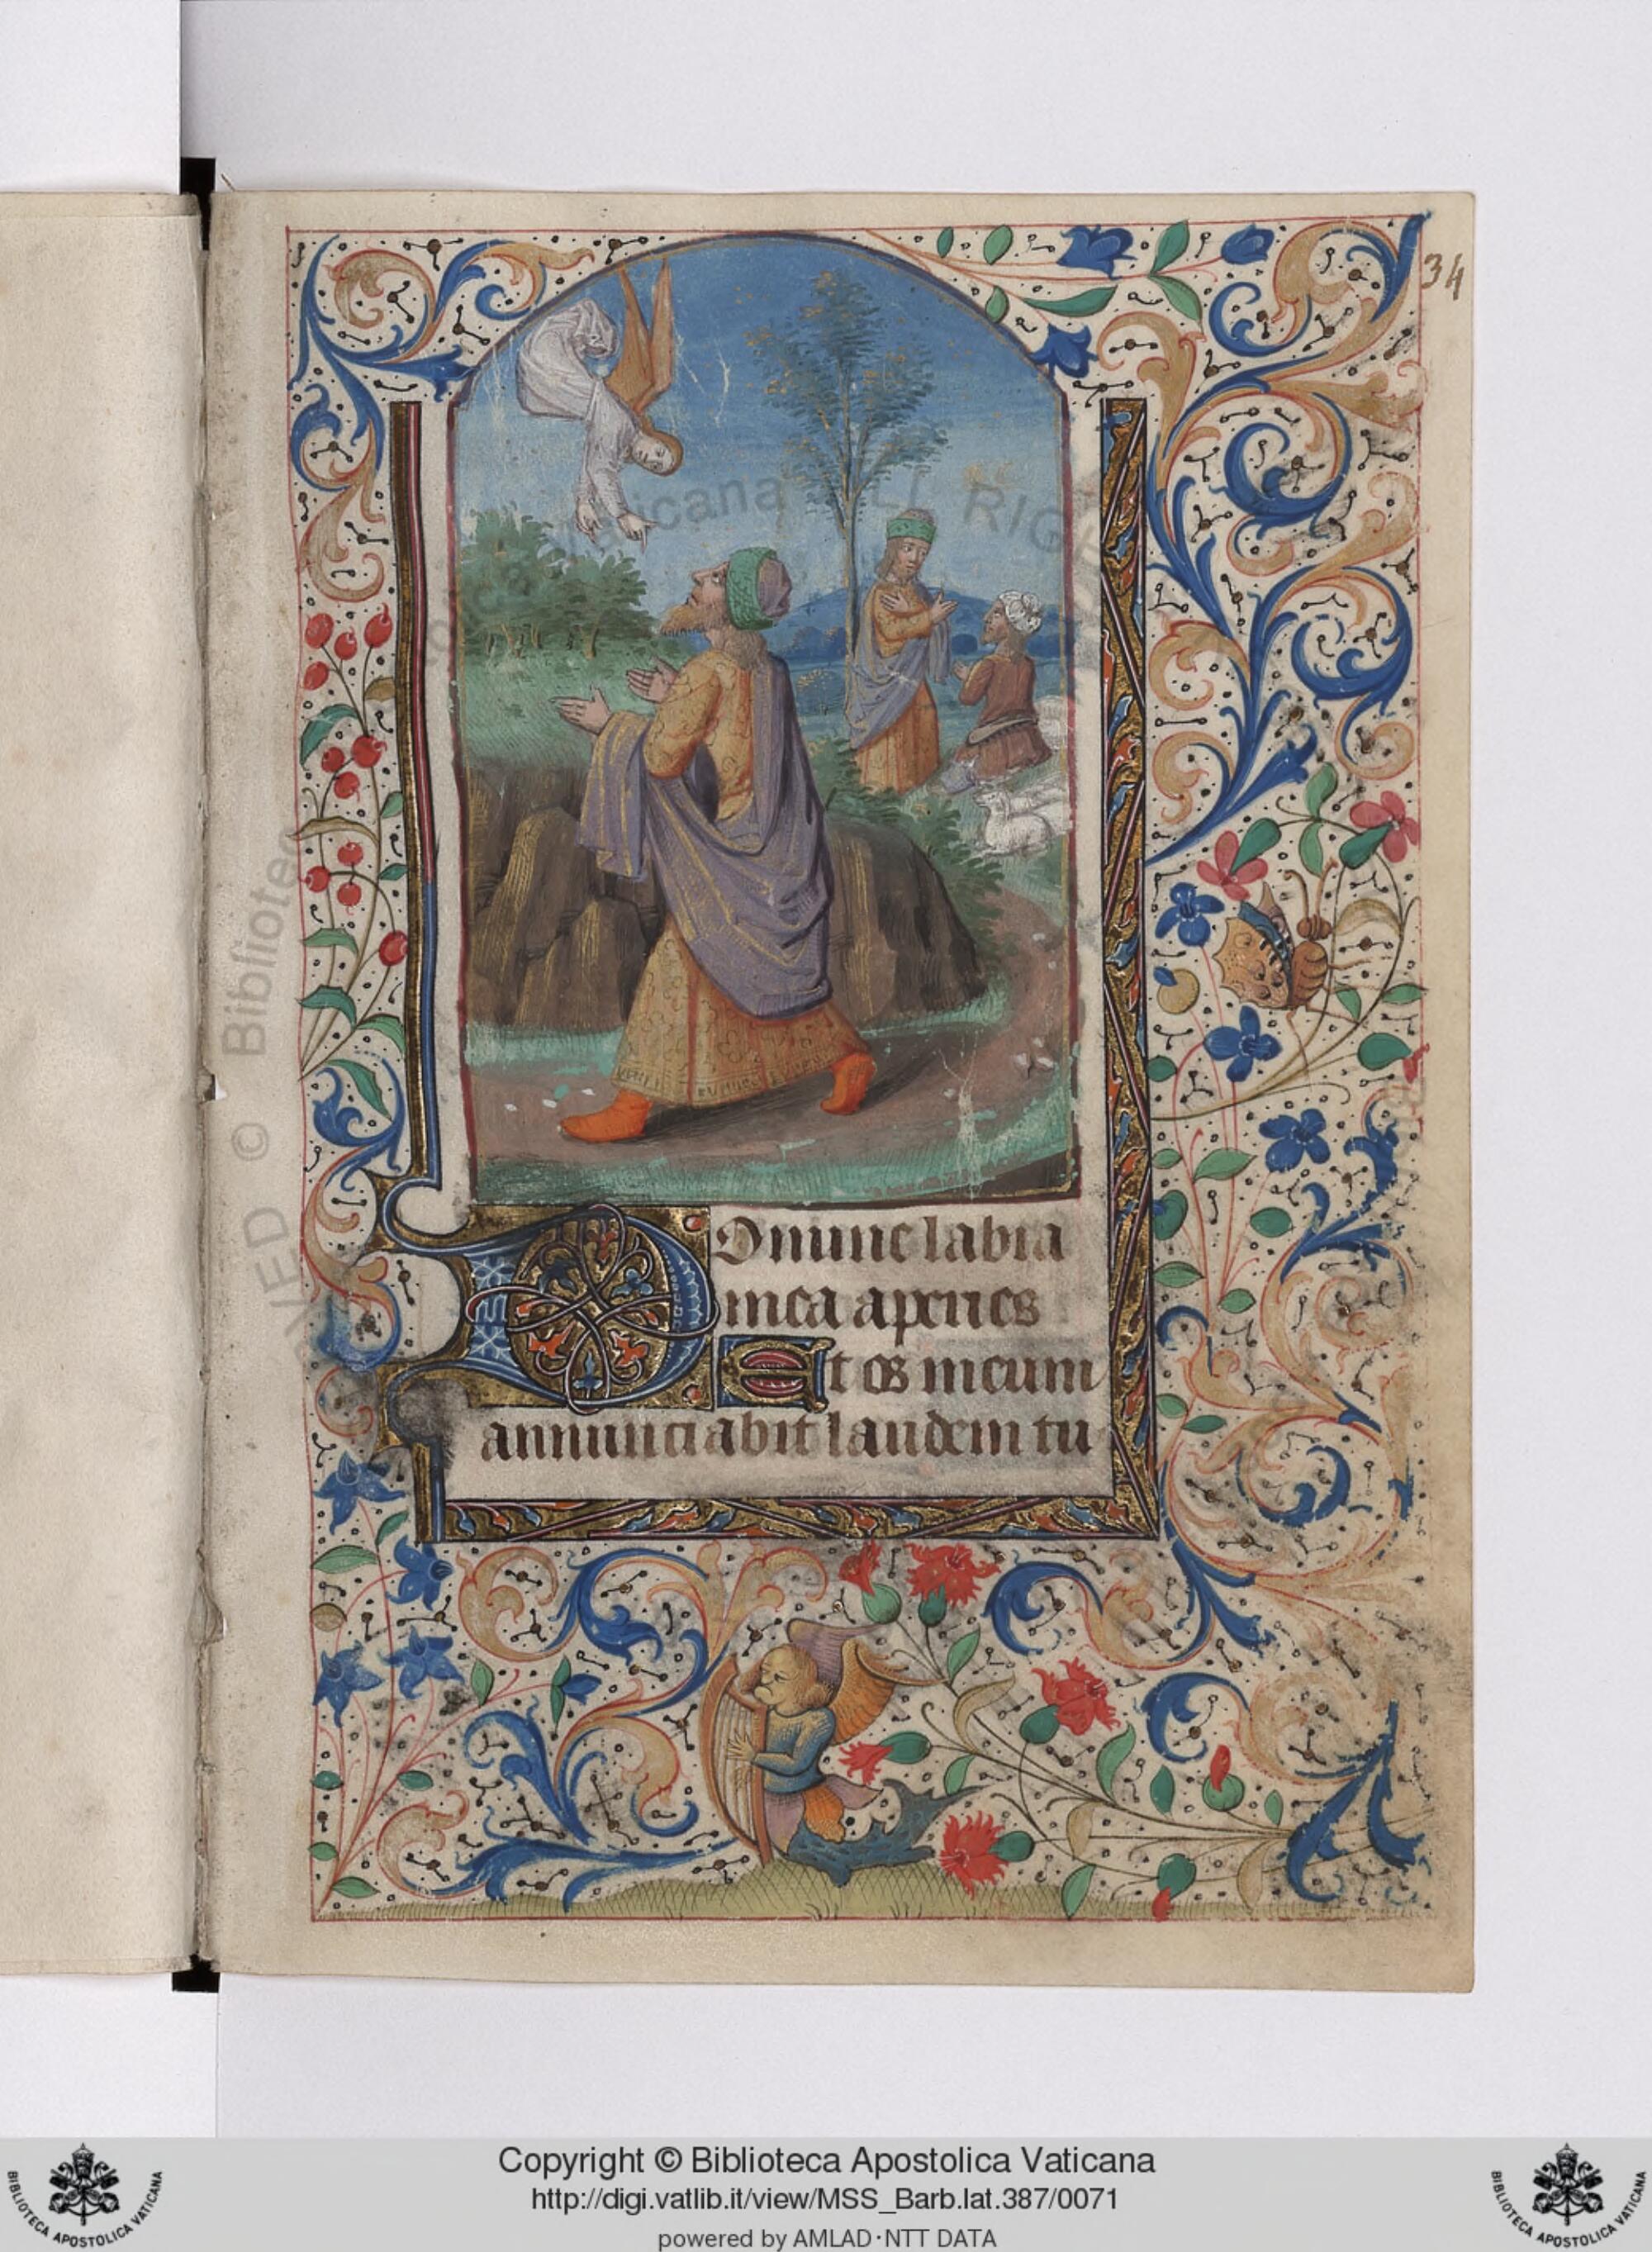 34
Domine labia
mea aperies
Et os meum
annunciabit laudem tu
Copyright © Biblioteca Apostolica Vaticana
http://digi.vatlib.it/view/MSS_Barb.lat.387/0071
powered by AMLAD·NTT DATA
BIBLIOTECA APOSTOLICA VATICANA
BIBLIOTECA APOSTOLICA VATICANA